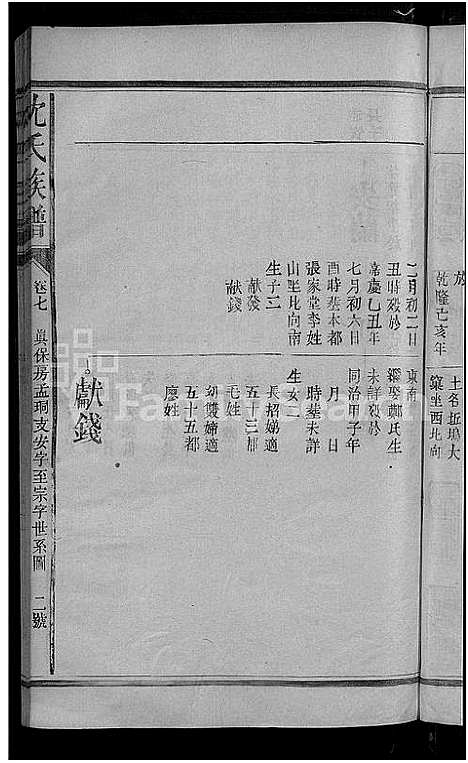 於
乾隆己亥年
土名坵塢大
窠坐西北向
二月初二日
丑時歿於
嘉慶乙丑年
七月初六日
酉時塟本都
張家堂李姓
山里比向南
生子二
献發
献錢
東南
繼娶鄭氏生
未詳歿於
同治甲子年
月 日
時塟未詳
生女二
長招娣適
五三都
毛姓
幼雙娣適
五十五都
廖姓
獻錢
沈氏族譜
卷七
眞保房孟珦支安字至宗字世系圖
二號